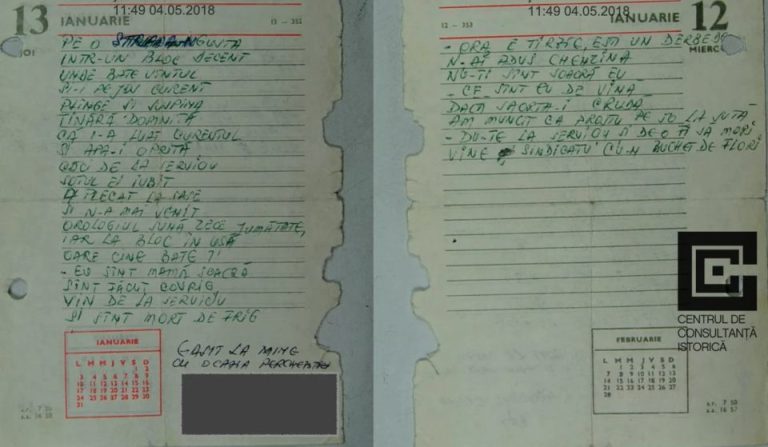 13 IANUARIE 13 - 352
JOI
11:49 04.05.2018
PE O STRADA NGUSTA
INTR-UN BLOC DECENT
UNDE BATE VINTUL
SI-I PEJU CURENT
PLINGE SI SUSPINA
TINARA DOMNITA
CA I-A LUAT CURENTUL
SI APA-I OPRITA
CACI DE LA SERVICIU
SOTUL EI IUBIT
A PLECAT LA SASE
SI N-A MAI VENIT
OROLOGIUL SUNĂ ZECE JUMĂTATE,
IAR LA BLOC ÎN USĂ
OARE CINE BATE ?!
- EU SÎNT MAMĂ SOACRĂ
SÎNT FĂCUT COVRIG
VIN DE LA SERVICIU
SI SÎNT MORT DE FRIG
IANUARIE
L M M J V S D
1 2
3 4 5 6 7 8 9
10 11 12 13 14 15 16
17 18 19 20 21 22 23
24 25 26 27 28 29 30
31
GASIT LA MINE
CU OCAZIA PERCHEZITIEI
12 - 353 IANUARIE 12
MIERCURI
11:49 04.05.2018
- ORA E TIRZIE, ESTI UN DERBEDEU
N-AI ADUS CHENZINA
NU-TI SINT SOACRĂ EU
- CE SINT EU DE VINĂ
DACĂ SOARTA-I CRUDĂ
AM MUNCIT CA PROSTU PE 50 LA SUTĂ
- DU-TE LA SERVICIU SI DE-O FI SA MORI
VINE SINDICATU CU-N BUCHET DE FLORI
FEBRUARIE
L M M J V S D
1 2 3 4 5 6
7 8 9 10 11 12 13
14 15 16 17 18 19 20
21 22 23 24 25 26 27
28
CENTRUL DE
CONSULTANȚĂ
ISTORICĂ